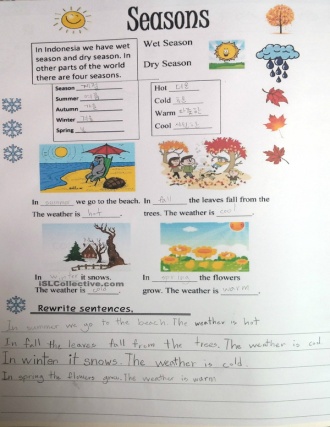 Seasons
In Indonesia we have wet
season and dry season. In
other parts of the world
there are four seasons.
Wet Season
Dry Season
Season
Summer
Autumn
Winter
Spring
Hot
Cold
Warm
Cool
In summer we go to the beach.
The weather is hot.
In fall the leaves fall from the
trees. The weather is cool.
In winter it snows.
iSLCollective.com
The weather is cold.
In spring the flowers
grow. The weather is warm.
Rewrite sentences.
In summer we go to the beach. The weather is hot
In fall the leaves fall from the trees. The weather is cool
In winter it snows. The weather is cold.
In spring the flowers grow. The weather is warm